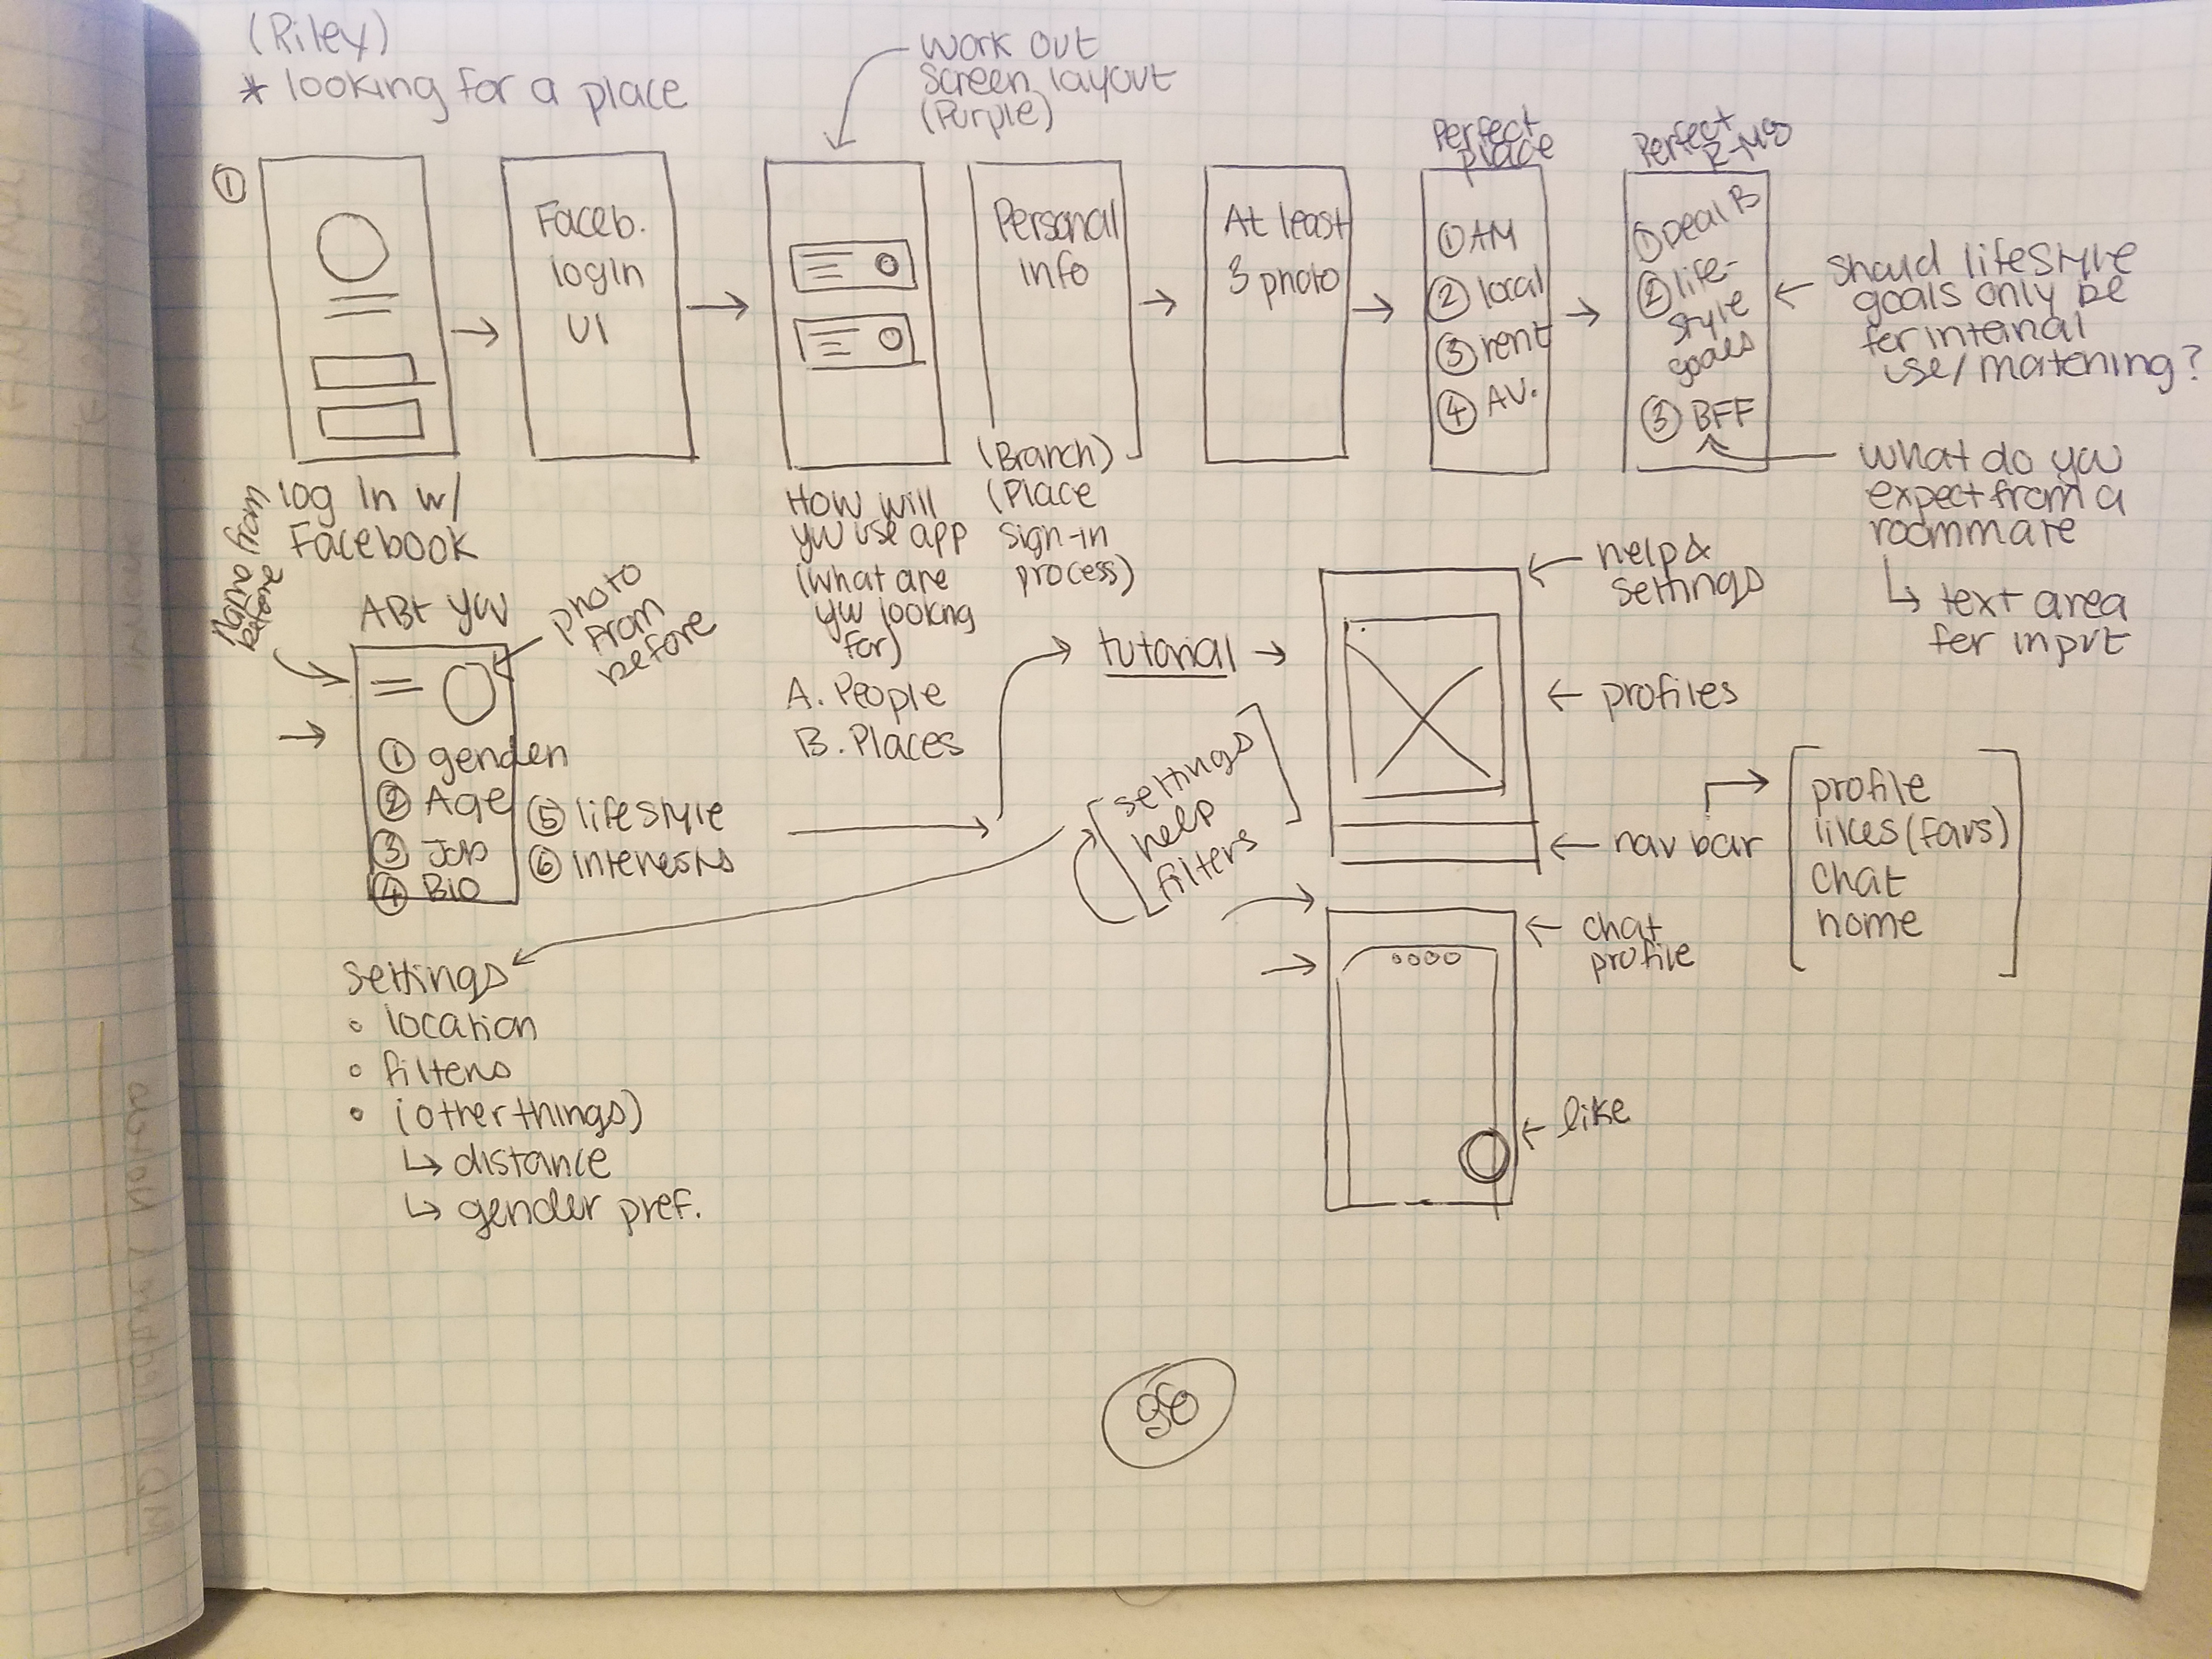 (Riley)
* looking for a place
work out
screen layout
(Purple)
①
Faceb.
login
UI
Personal
info
At least
3 photo
Perfect
place
① AM
② local
③ rent
④ AV.
Perfect
R-M8
① Deal B
② life-
style
goals
③ BFF
should lifestyle
goals only be
for internal
use/matching?
what do you
expect from a
roommate
↳ text area
for input
log in w/
Facebook
How will
you use app
(what are
you looking
for)
A. People
B. Places
(Branch)
(Place
sign-in
process)
Name from
before
Abt you
photo
from
before
① gender
② Age
③ Job
④ Bio
⑤ lifestyle
⑥ interests
tutorial
help &
settings
profiles
nav bar
profile
likes (favs)
chat
home
settings
help
filters
chat
profile
like
settings
• location
• filters
• (other things)
↳ distance
↳ gender pref.